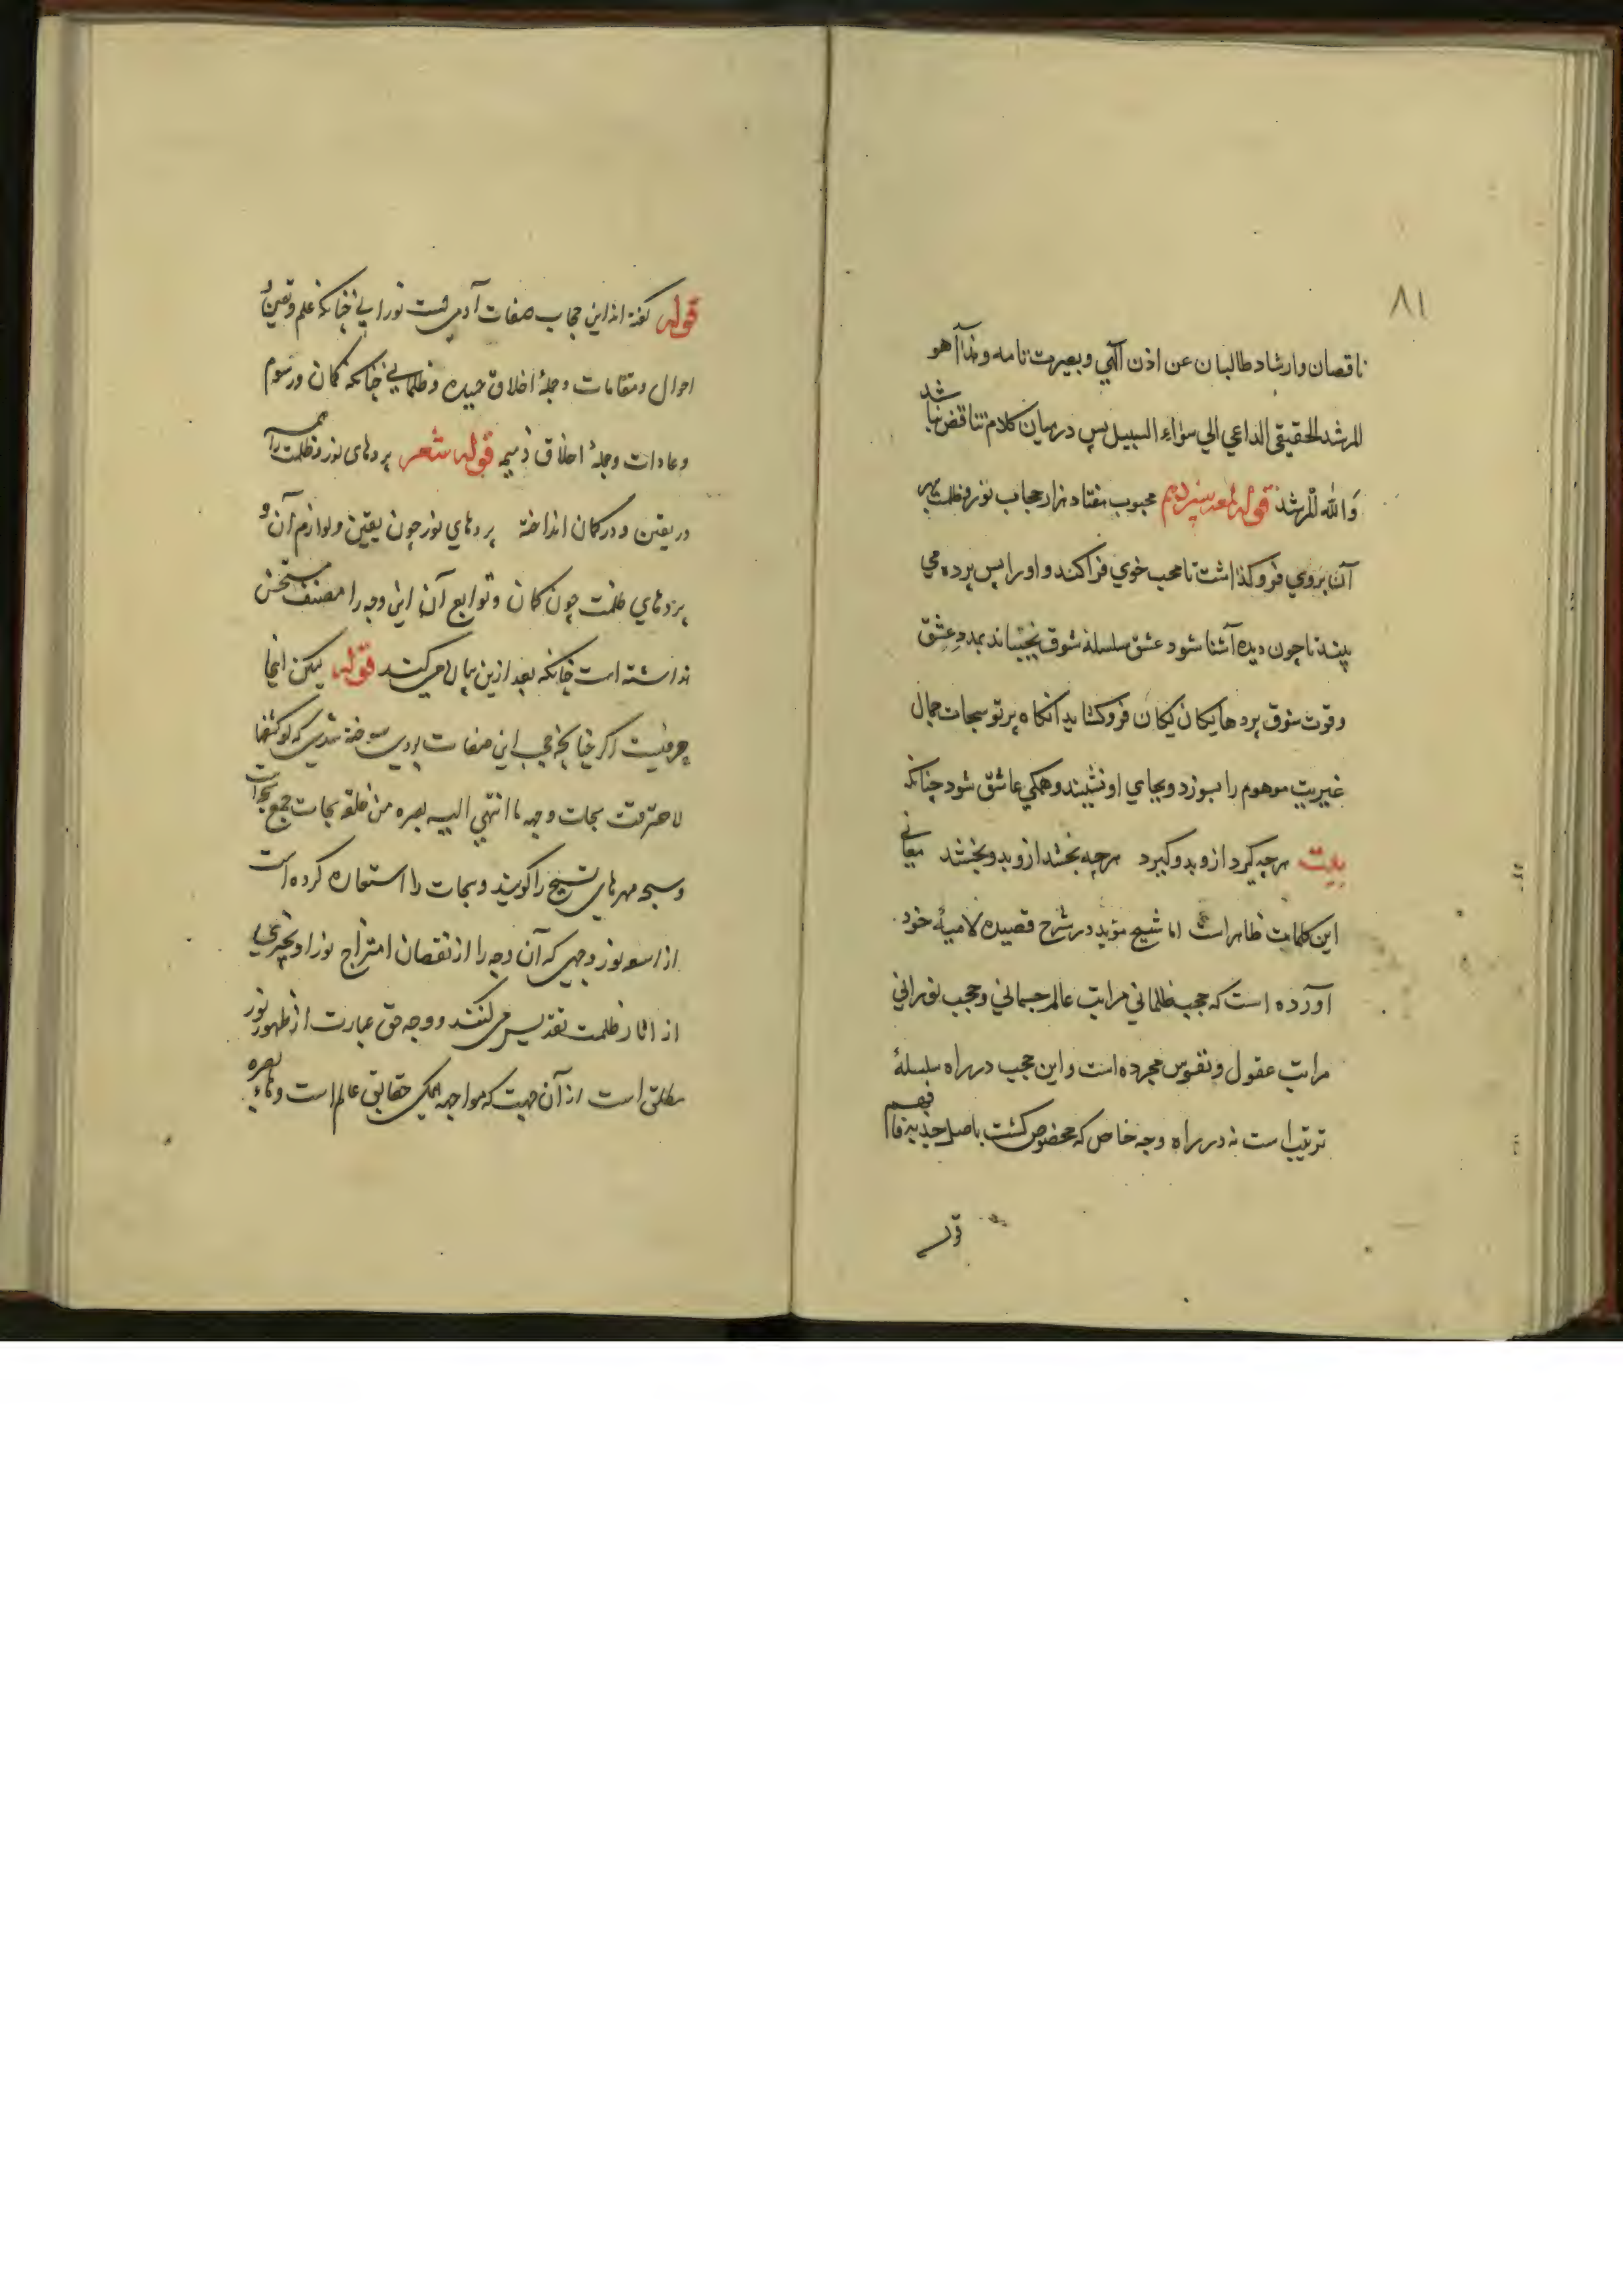 ٨١
ناقصان وارشاد طالبان عن اذن الهي وبصيرت تامه وهذا هو
المرشد الحقيقي الداعي الي سواء السبيل پس درميان كلام تناقض نباشد
والله المرشد قوله لمعه سيزدهم محبوب هفتاد هزار حجاب نور وظلمت بهر
آن بروي فروگذاشت تا محب خوي فراكند و اورا پس پرده مي
بيند تا چون ديده آشنا شود عشق سلسله شوق بجنباند بمدد عشق
وقوت شوق پردها يكان يكان فروگشايد آنگاه پرتو سبحات جمال
غيريت موهوم را بسوزد وبجاي او نشيند وهمگي عاشق شود چنانكه
بيت هرچه گيرد ازو بدو گيرد هرچه بخشد ازو بدو بخشد معاني
اين كلمات ظاهر است اما شيخ مؤيد در شرح قصيده لاميۀ خود
آورده است كه حجب ظلماني مراتب عالم جسماني وحجب نوراني
مراتب عقول ونفوس مجرده است واين حجب در راه سلسلۀ
ترتيب است نه در راه وجه خاص كه مخصوص گشت باصل جذبه فافهم
قوله
قوله گفته اند اين حجاب صفات آدمي است نوراني چنانكه علم و يقين و
احوال ومقامات وجملۀ اخلاق حميده وظلماني چنانكه گمان ورسوم
وعادات وجملۀ اخلاق ذميمه قوله شعر پردهای نور وظلمت را همه
در يقين و در گمان انداخته پردهاي نور چون يقين ولوازم آن و
پردهاي ظلمت چون گمان وتوابع آن اين وجه را مصنف مستحسن
نداشته است چنانكه بعد ازين بيان مي كند قوله ليكن اينجا
حرفيست اگر چنانچه حجب اين صفات بودي سوخته شدي كه لو كشفها
لاحترقت سبحات وجهه ما انتهي اليه بصره من خلقه سبحات جمع سبحه است
وسبحه مهرهاي تسبيح را گويند وسبحات را استعاره كرده است
از اسم نور وجهي كه آن وجه را از نقصان امتزاج نور او بچيزي
از آثار ظلمت تقديس مي كنند و وجه حق عبارت از ظهور نور
مطلق است از آن جهت كه مواجهه همگي حقايق عالم است وهاء بصره